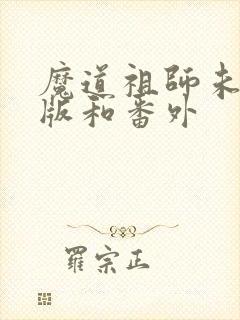 魔道祖師未
版和番外
羅宗正